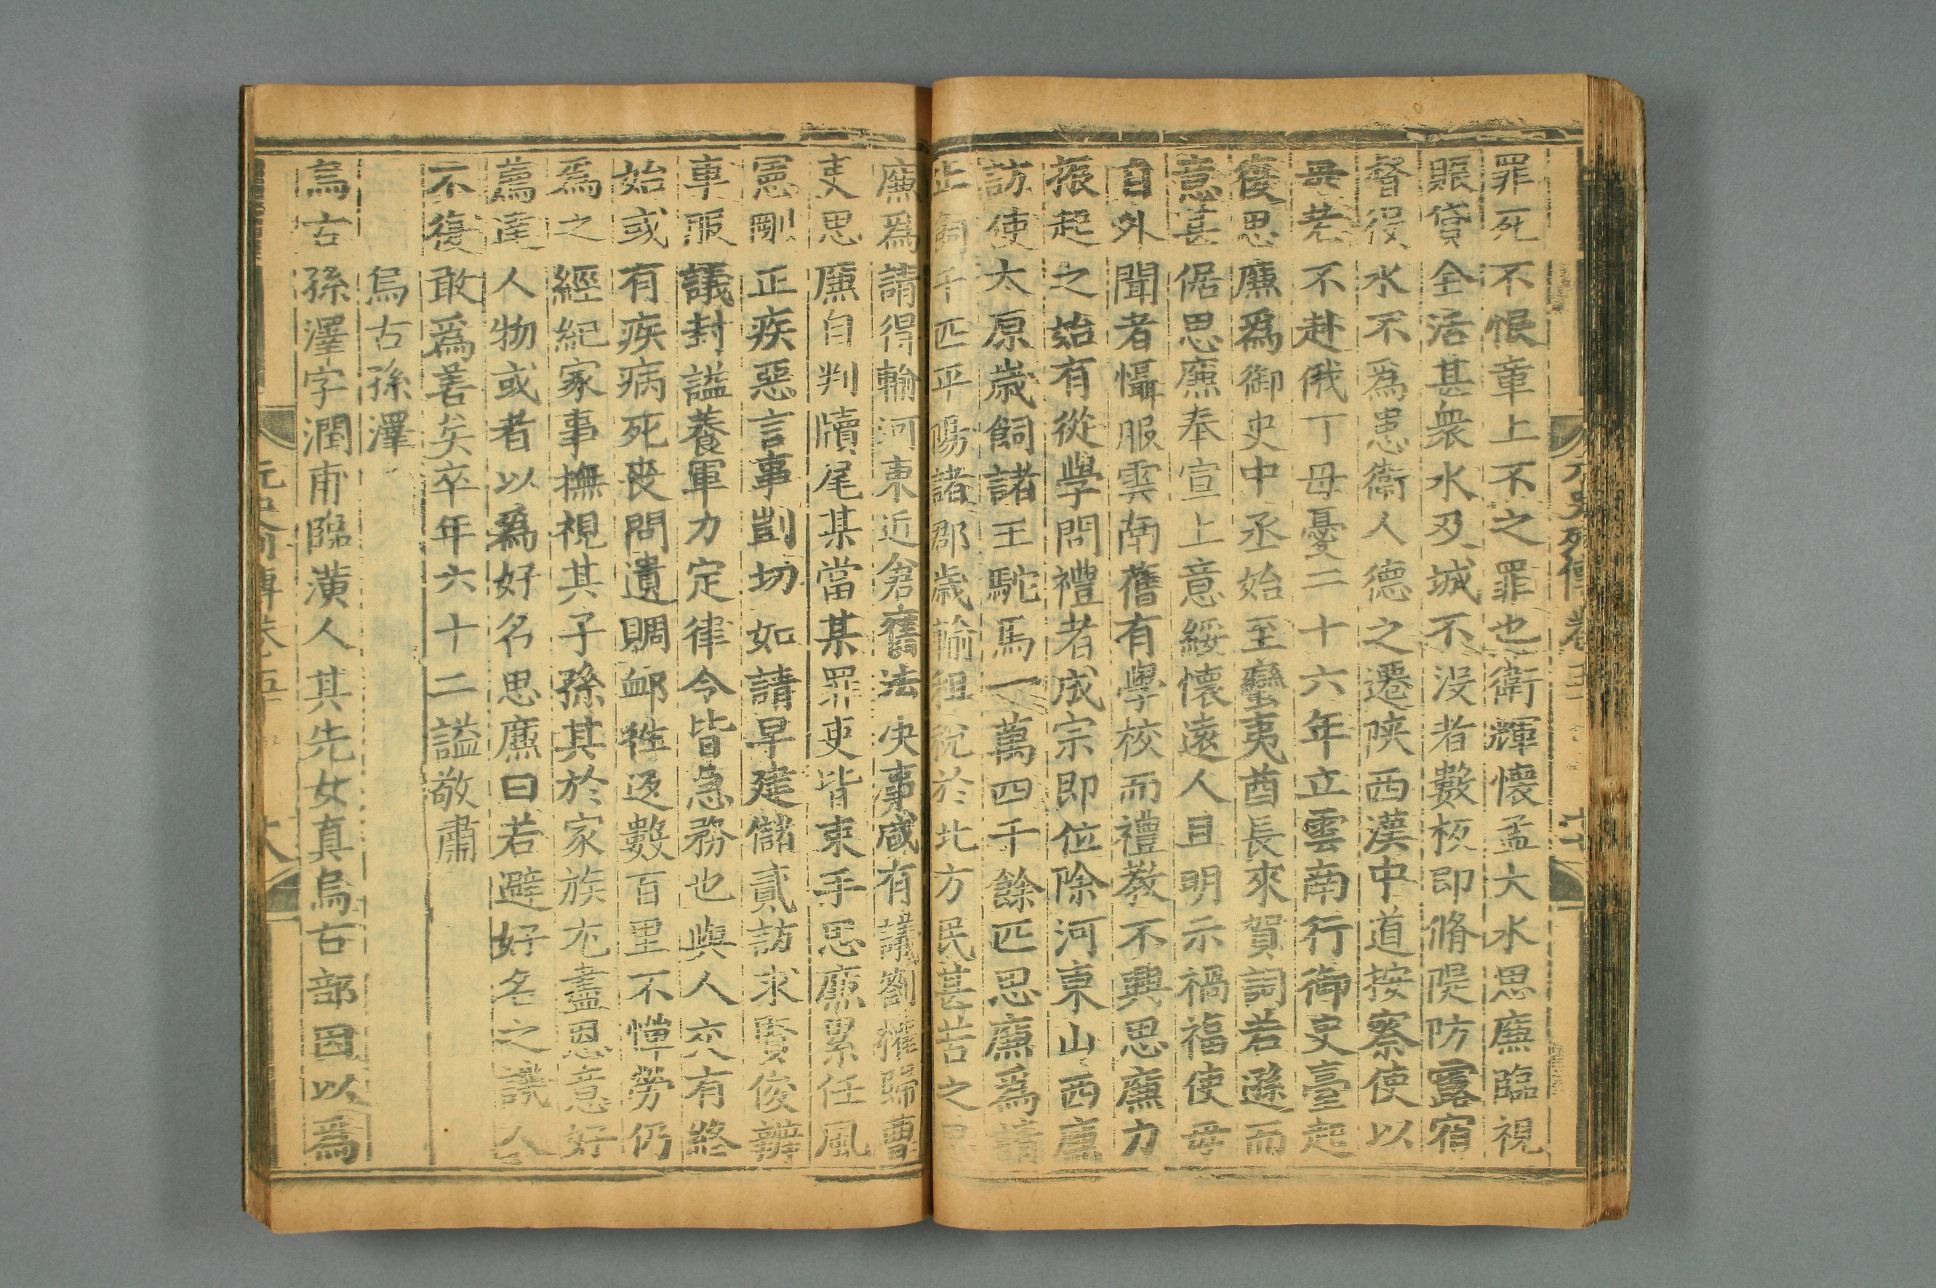 罪死不恨章上不之罪也衛輝懷孟大水思廉臨視
賑貸全活甚衆水及城不没者數板即脩隄防露宿
督役水不爲患衛人德之遷陜西漢中道按察使以
母老不赴俄丁母憂二十六年立雲南行御史臺起
復思廉爲御史中丞始至蠻夷酋長來賀詞若遜而
意甚倨思廉奉宣上意綏懷遠人且明示禍福使毋
自外聞者懾服雲南舊有學校而禮教不興思廉力
振起之始有從學問禮者成宗即位除河東山西廉
訪使太原歲飼諸王駝馬一萬四千餘匹思廉爲請
止飼千匹平陽諸郡歲輸租稅於北方民甚苦之思
廉爲請得輸河東近倉舊法决事咸有議劄權歸曹
吏思廉自判牘尾某當某罪吏皆束手思廉累任風
憲剛正疾惡言事剴切如請早建儲貳訪求賢俊辨
車服議封謚養軍力定律令皆急務也與人交有終
始或有疾病死喪問遺賙䘏往返數百里不憚勞仍
爲之經紀家事撫視其子孫其於家族尤盡恩意好
薦達人物或者以爲好名思廉曰若避好名之譏人
不復敢爲善矣卒年六十二謚敬肅
烏古孫澤
烏古孫澤字潤甫臨潢人其先女真烏古部因以爲
元史列傳卷五十